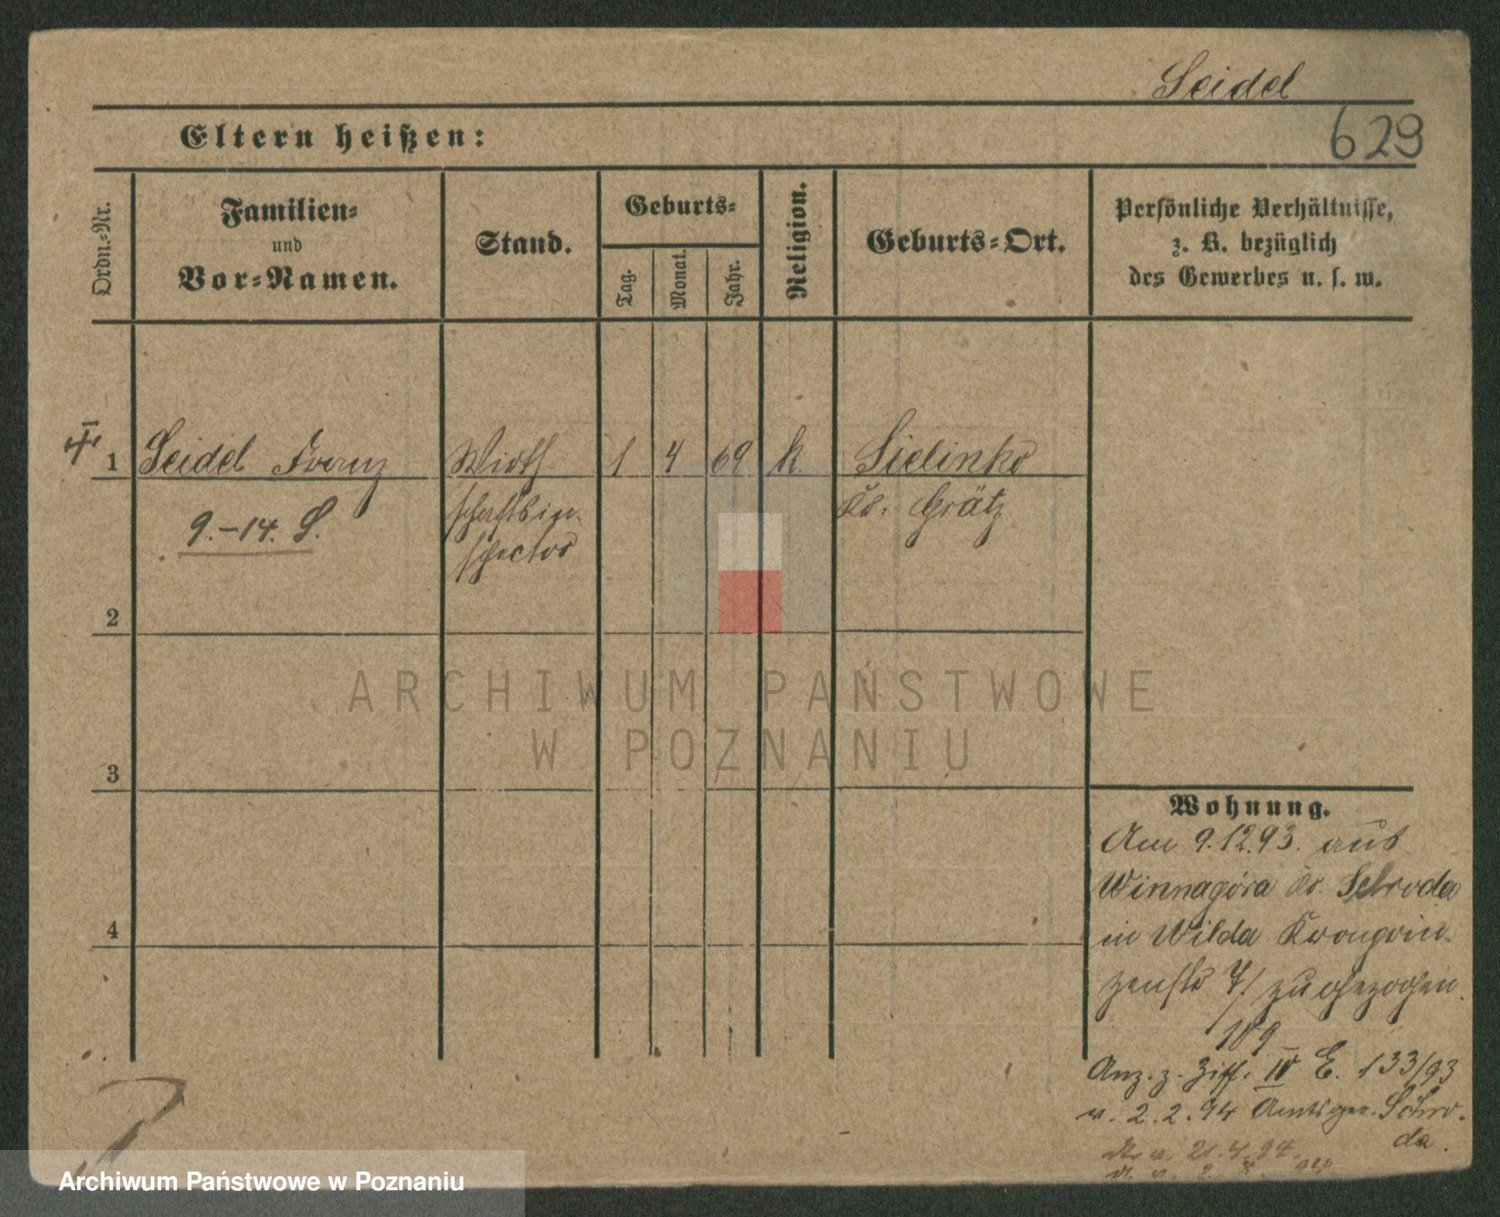 Seidel
629
Eltern heißen:
Ordn.-Nr.
Familien-
und
Vor-Namen.
Stand.
Geburts-
Tag.
Monat.
Jahr.
Religion.
Geburts-Ort.
Persönliche Verhältnisse,
z. B. bezüglich
des Gewerbes u. s. w.
1 Seidel Franz Wirth- 1 4 69 k. Sielinko
9.-14. S. schaftsin- Kr. Grätz
spector
2
3
4
Wohnung.
Am 9.12.93. aus
Winnagóra Kr. Schroda
in Wilda Kronprin-
zenstr 7/ zugezogen.
109
Anz. z. Ziff. IV E. 133/93
v. 2.2.94 Amtsger. Schro-
da.
v. 21.4.94
ARCHIWUM PAŃSTWOWE
W POZNANIU
Archiwum Państwowe w Poznaniu